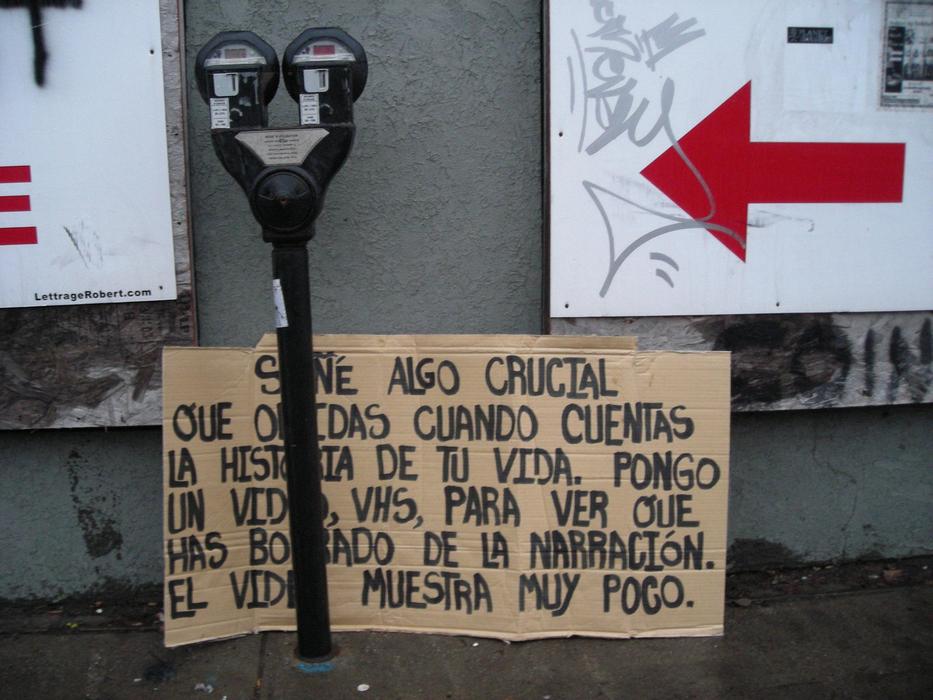 LettrageRobert.com
SOÑÉ ALGO CRUCIAL
QUE OLVIDAS CUANDO CUENTAS
LA HISTORIA DE TU VIDA. PONGO
UN VIDEO, VHS, PARA VER QUE
HAS BORRADO DE LA NARRACIÓN.
EL VIDEO MUESTRA MUY POCO.